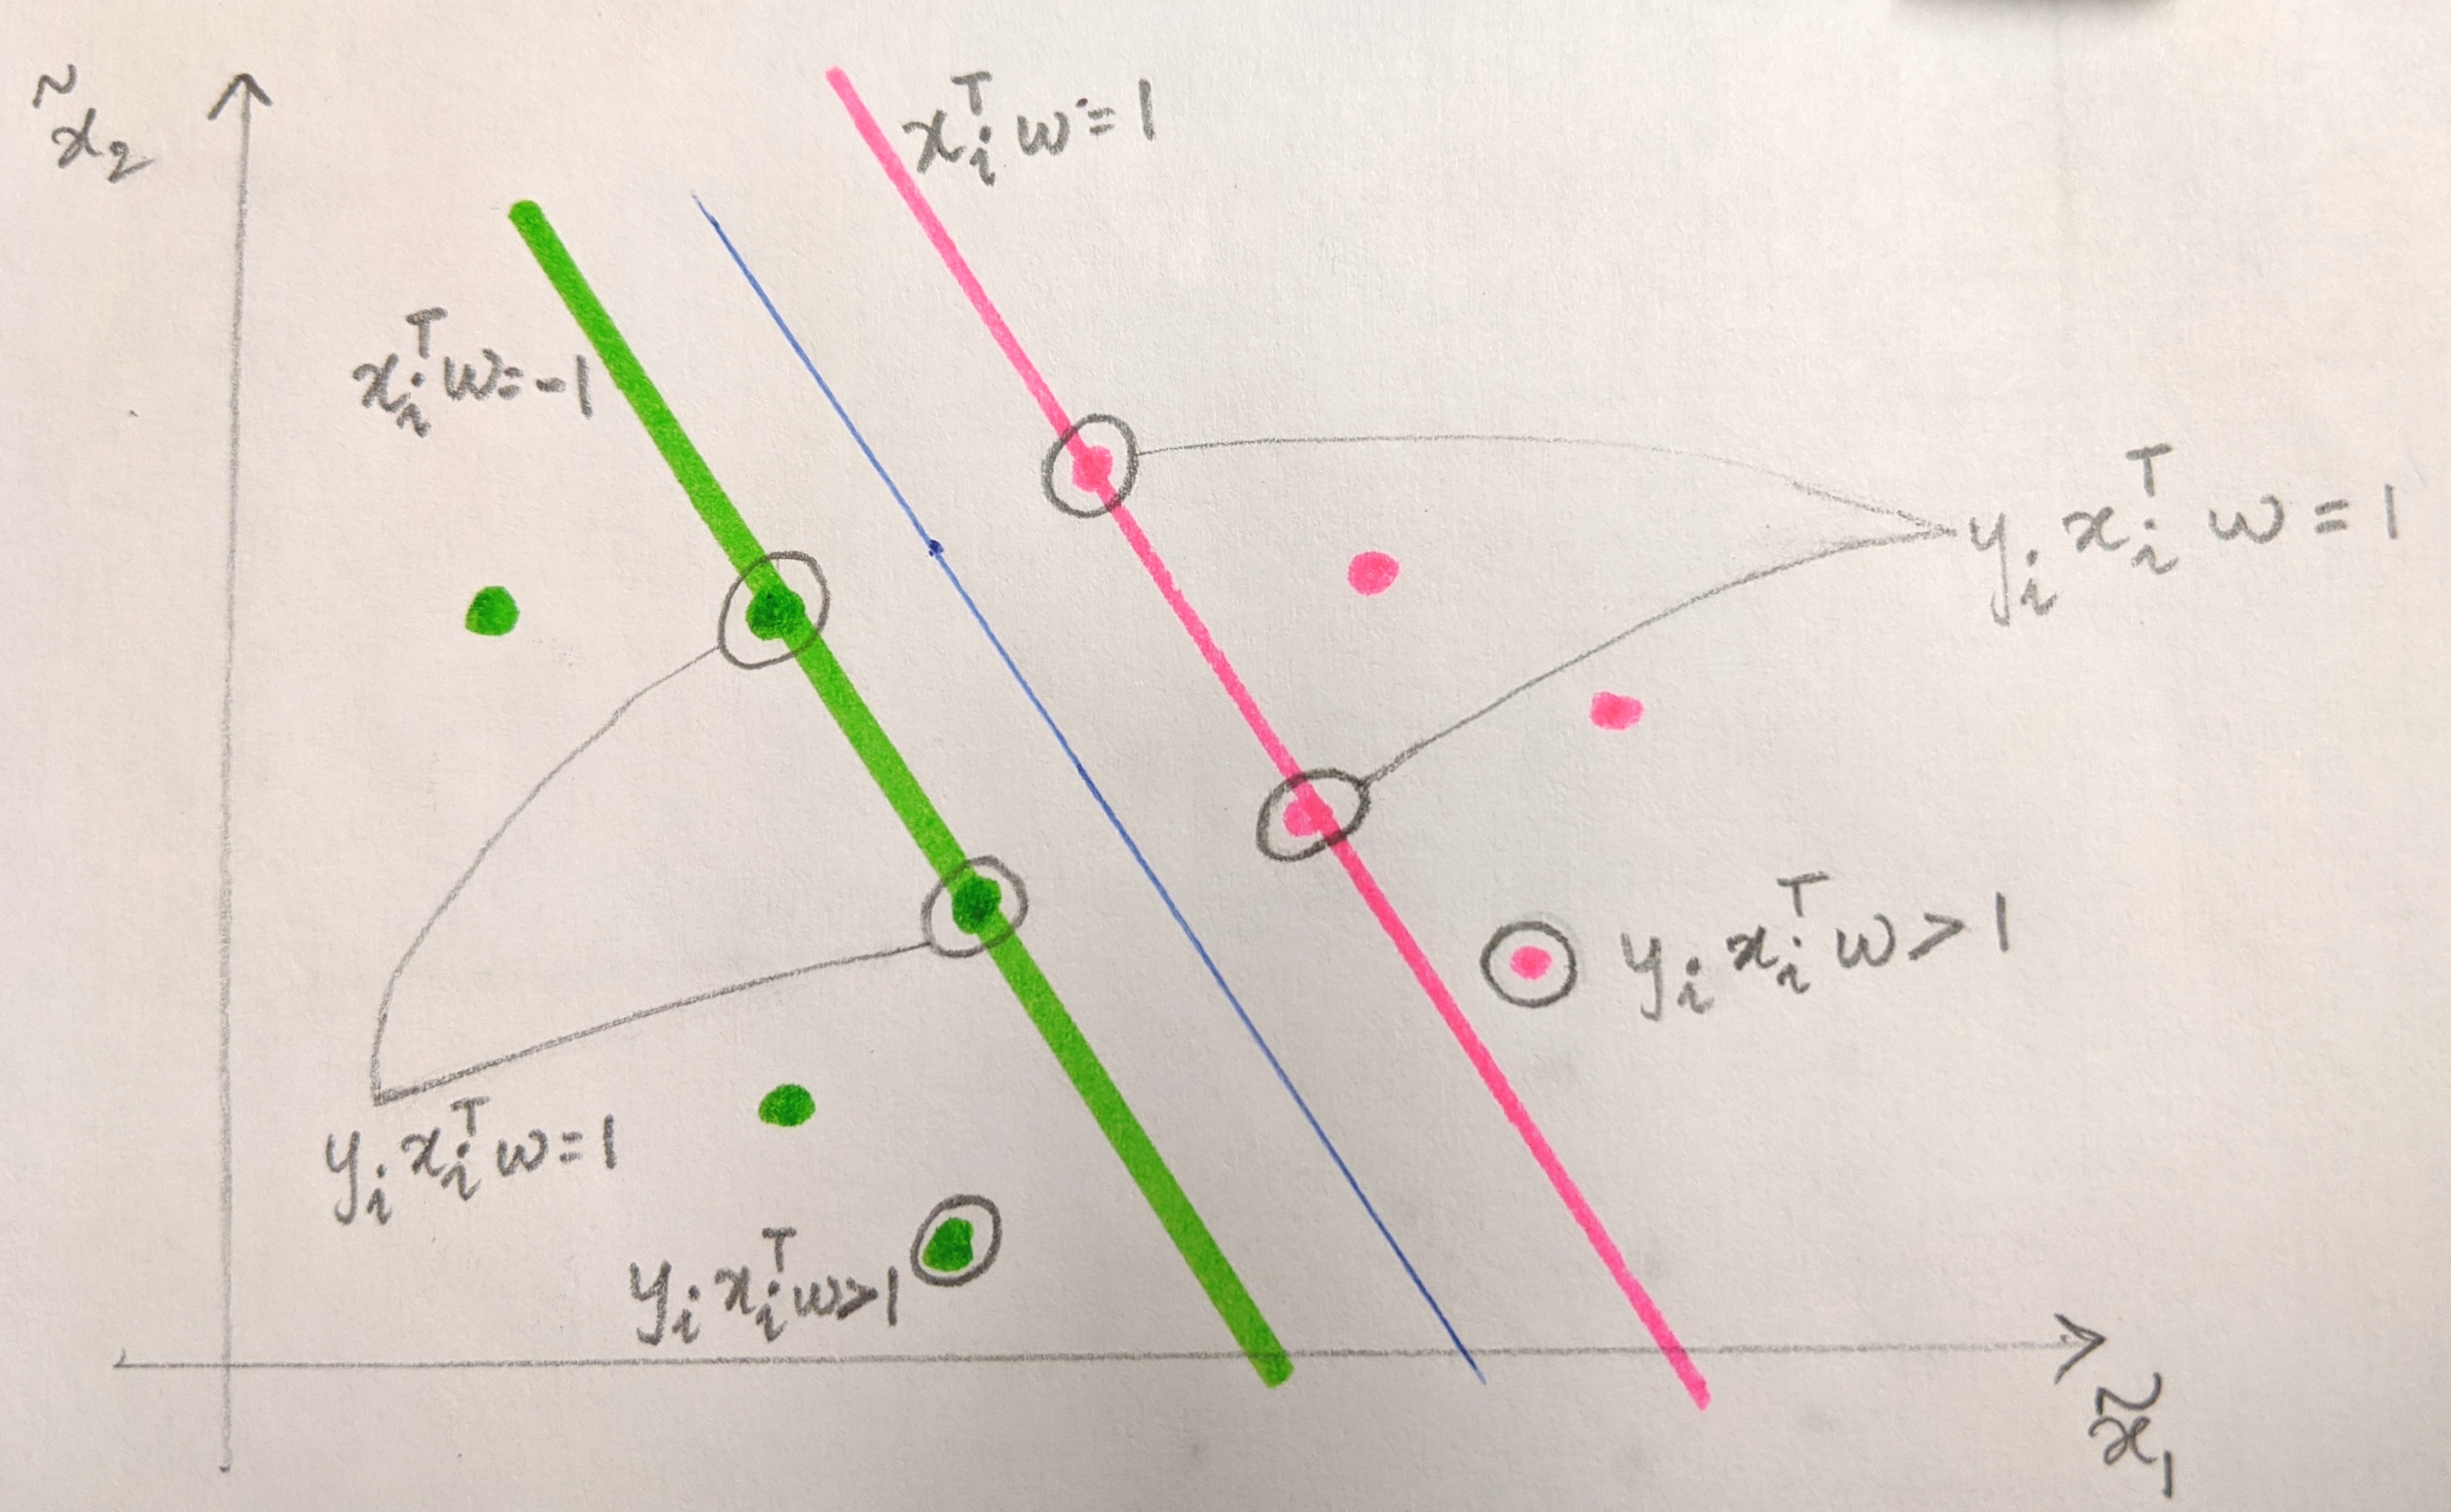 x̃₂
xᵢᵀw=1
xᵢᵀw=-1
yᵢ xᵢᵀ w = 1
yᵢ xᵢᵀ w > 1
yᵢ xᵢᵀ w = 1
yᵢ xᵢᵀ w > 1
x̃₁